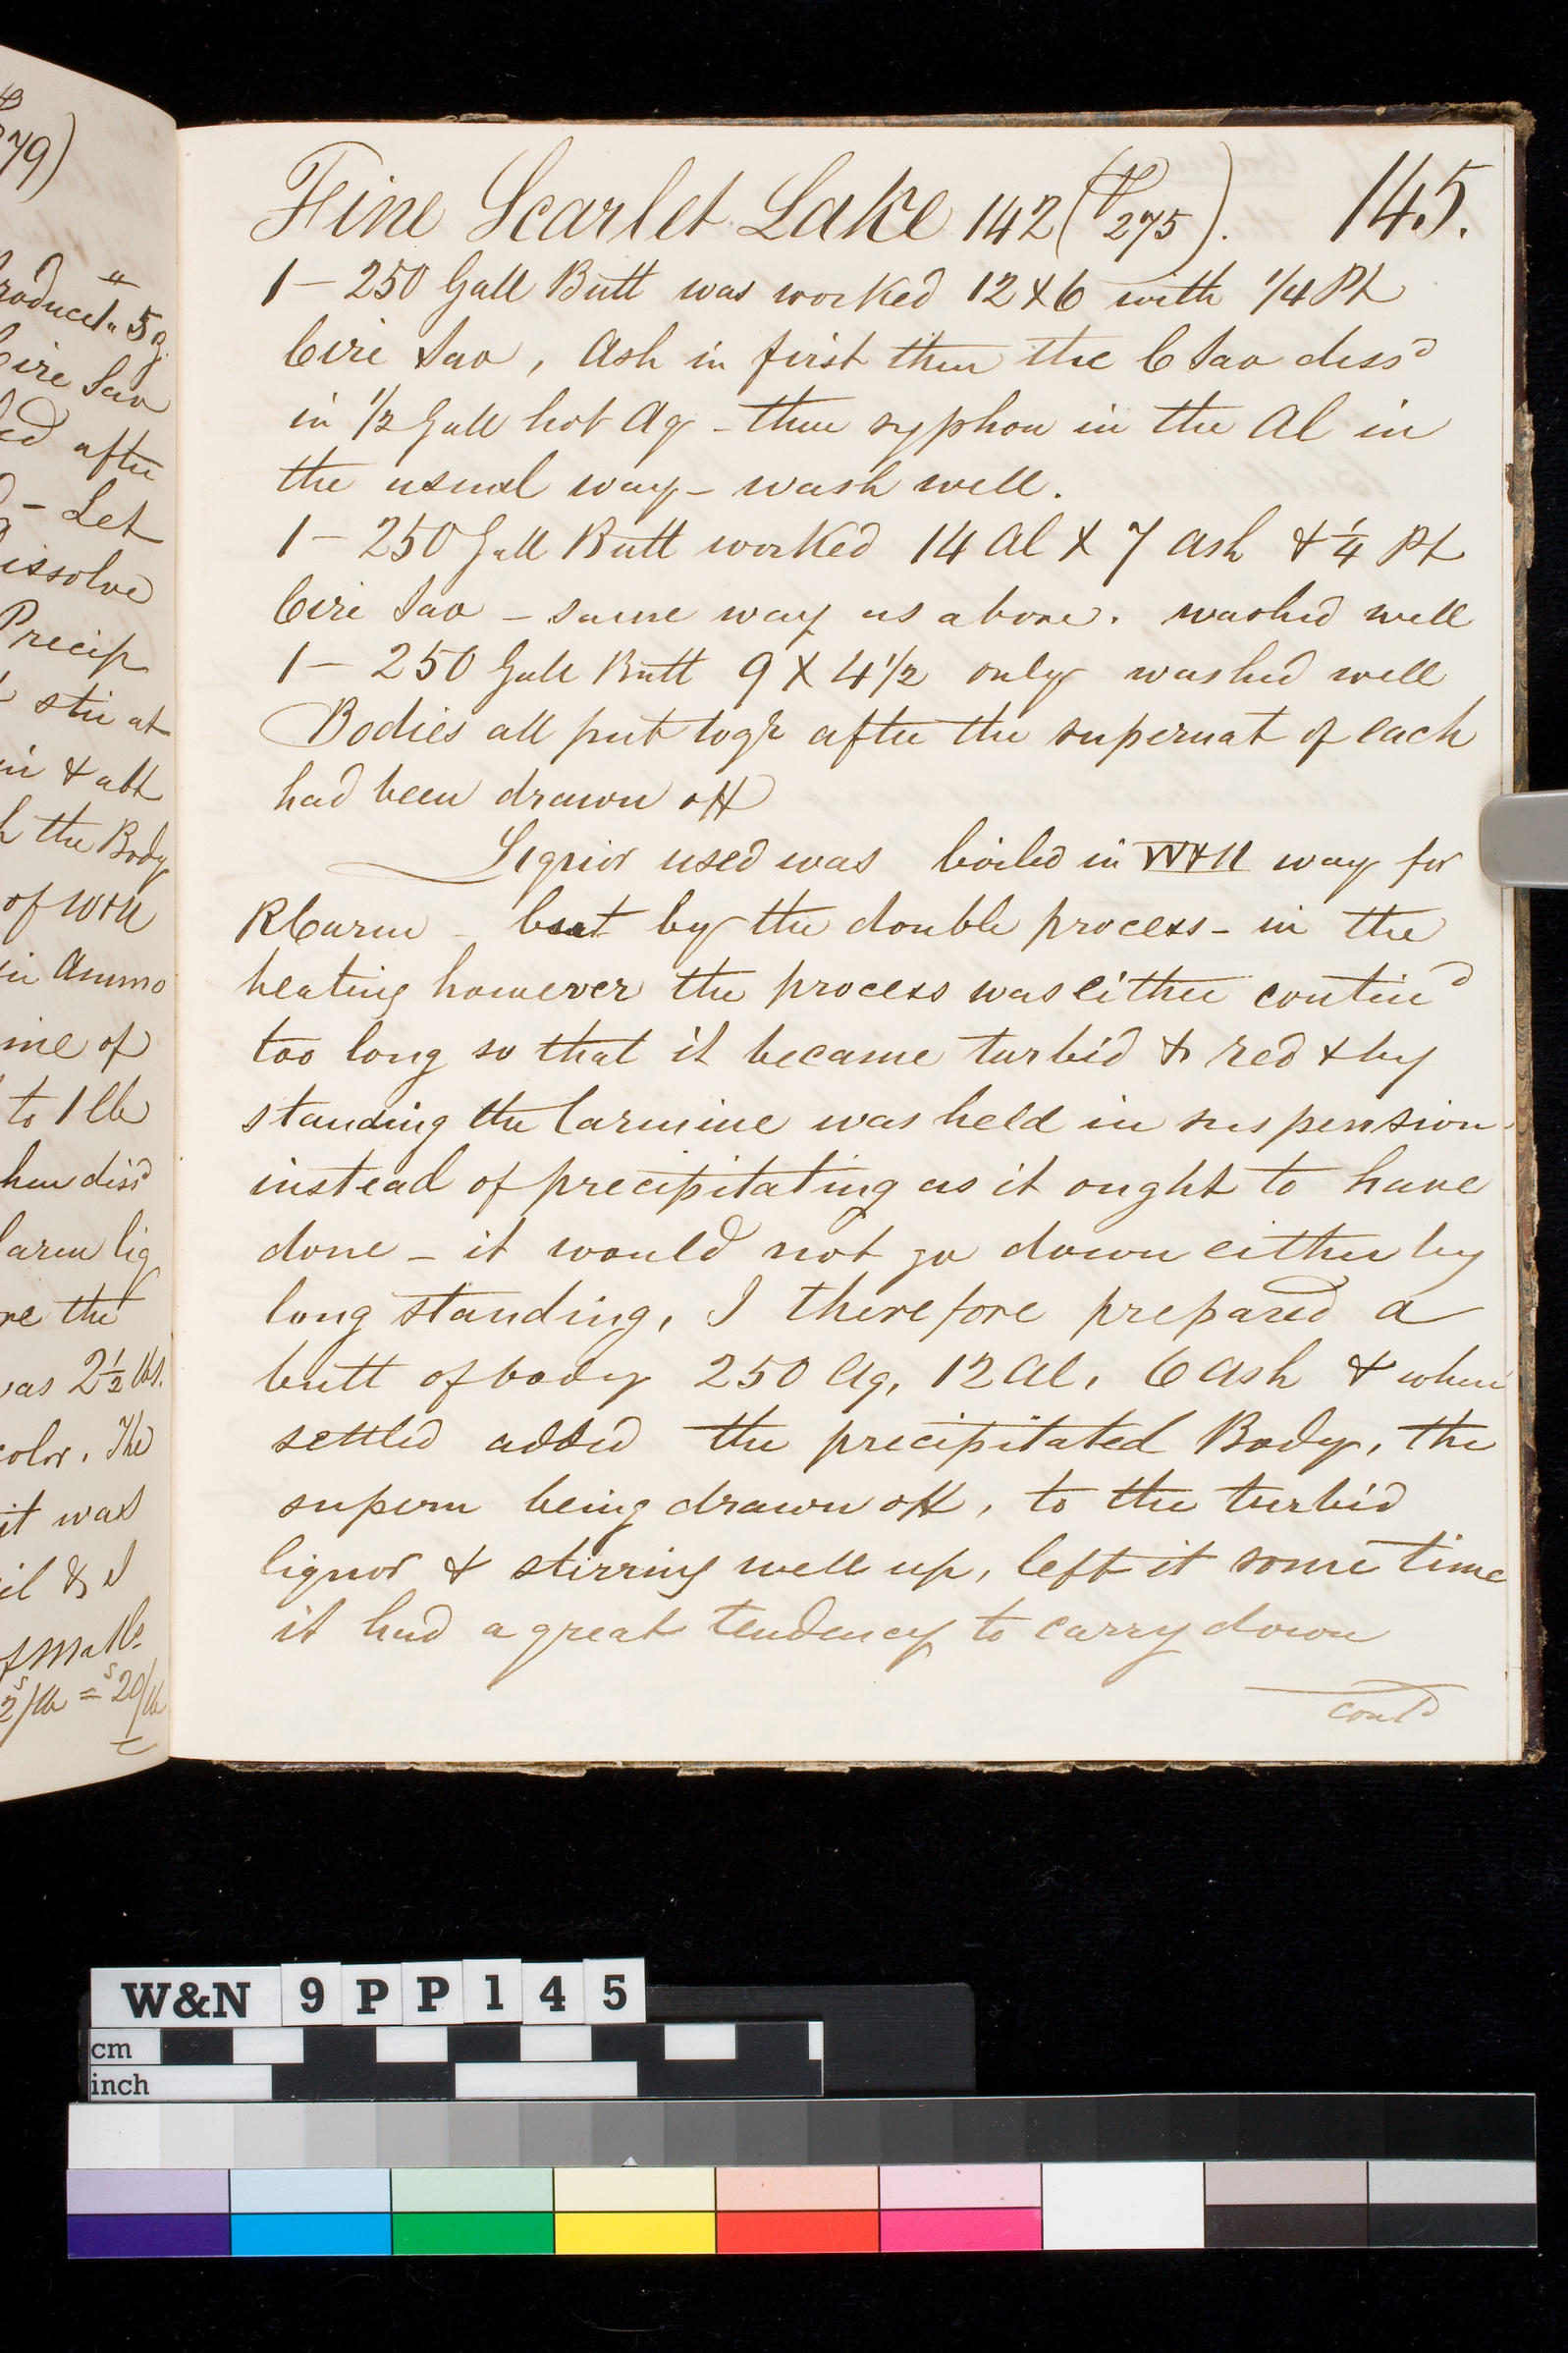 79)
4
Produced " 5 g
Cire Sav
ed after
- Let
issolve
Precip
stir at
in & abt
h the Body
of W+N
in Ammo
ine of
to 1 lb
hen dissd
Carm liq
re the
was 2½ lbs.
color. The
it was
of Matls
2s/lb = s20/lb
Fine Scarlet Lake 142 (P 275). 145.
1 – 250 Gall Butt was worked 12 X 6 with 1/4 Pt
Cire Sav, Ash in first then the C Sav dissd
in 1/2 Gall hot Aq – then syphon in the Al in
the usual way – wash well.
1 – 250 Gall Butt worked 14 Al X 7 Ash & ¼ Pt
Cire Sav – same way as above. washed well
1 – 250 Gall Butt 9 X 4½ only washed well
Bodies all put togr after the supernat of each
had been drawn off
Liquor used was boiled in W+N way for
RCarm – but by the double process – in the
heating however the process was either contind
too long so that it became turbid & red & by
standing the Carmine was held in suspension
instead of precipitating as it ought to have
done – it would not go down either by
long standing, I therefore prepared a
butt of body 250 Aq, 12 Al, 6 Ash & when
settled added the precipitated Body, the
supern being drawn off, to the turbid
liquor & stirring well up, left it some time
it had a great tendency to carry down
contd
W&N 9 P P 1 4 5
cm
inch